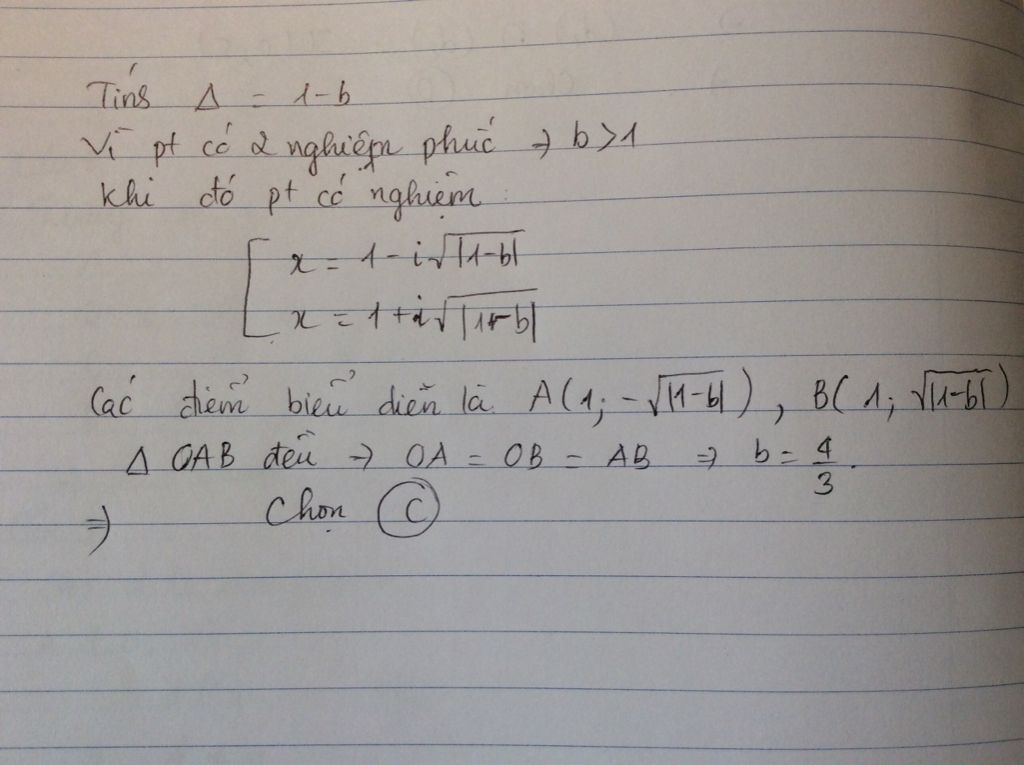 Tính Δ = 1-b
Vì pt có 2 nghiệm phức => b>1
khi đó pt có nghiệm:
x = 1 - i√|1-b|
x = 1 + i√|1-b|
Các điểm biểu diễn là A(1; -√|1-b|), B(1; √|1-b|)
Δ OAB đều -> OA = OB = AB => b = 4/3.
=> Chọn C